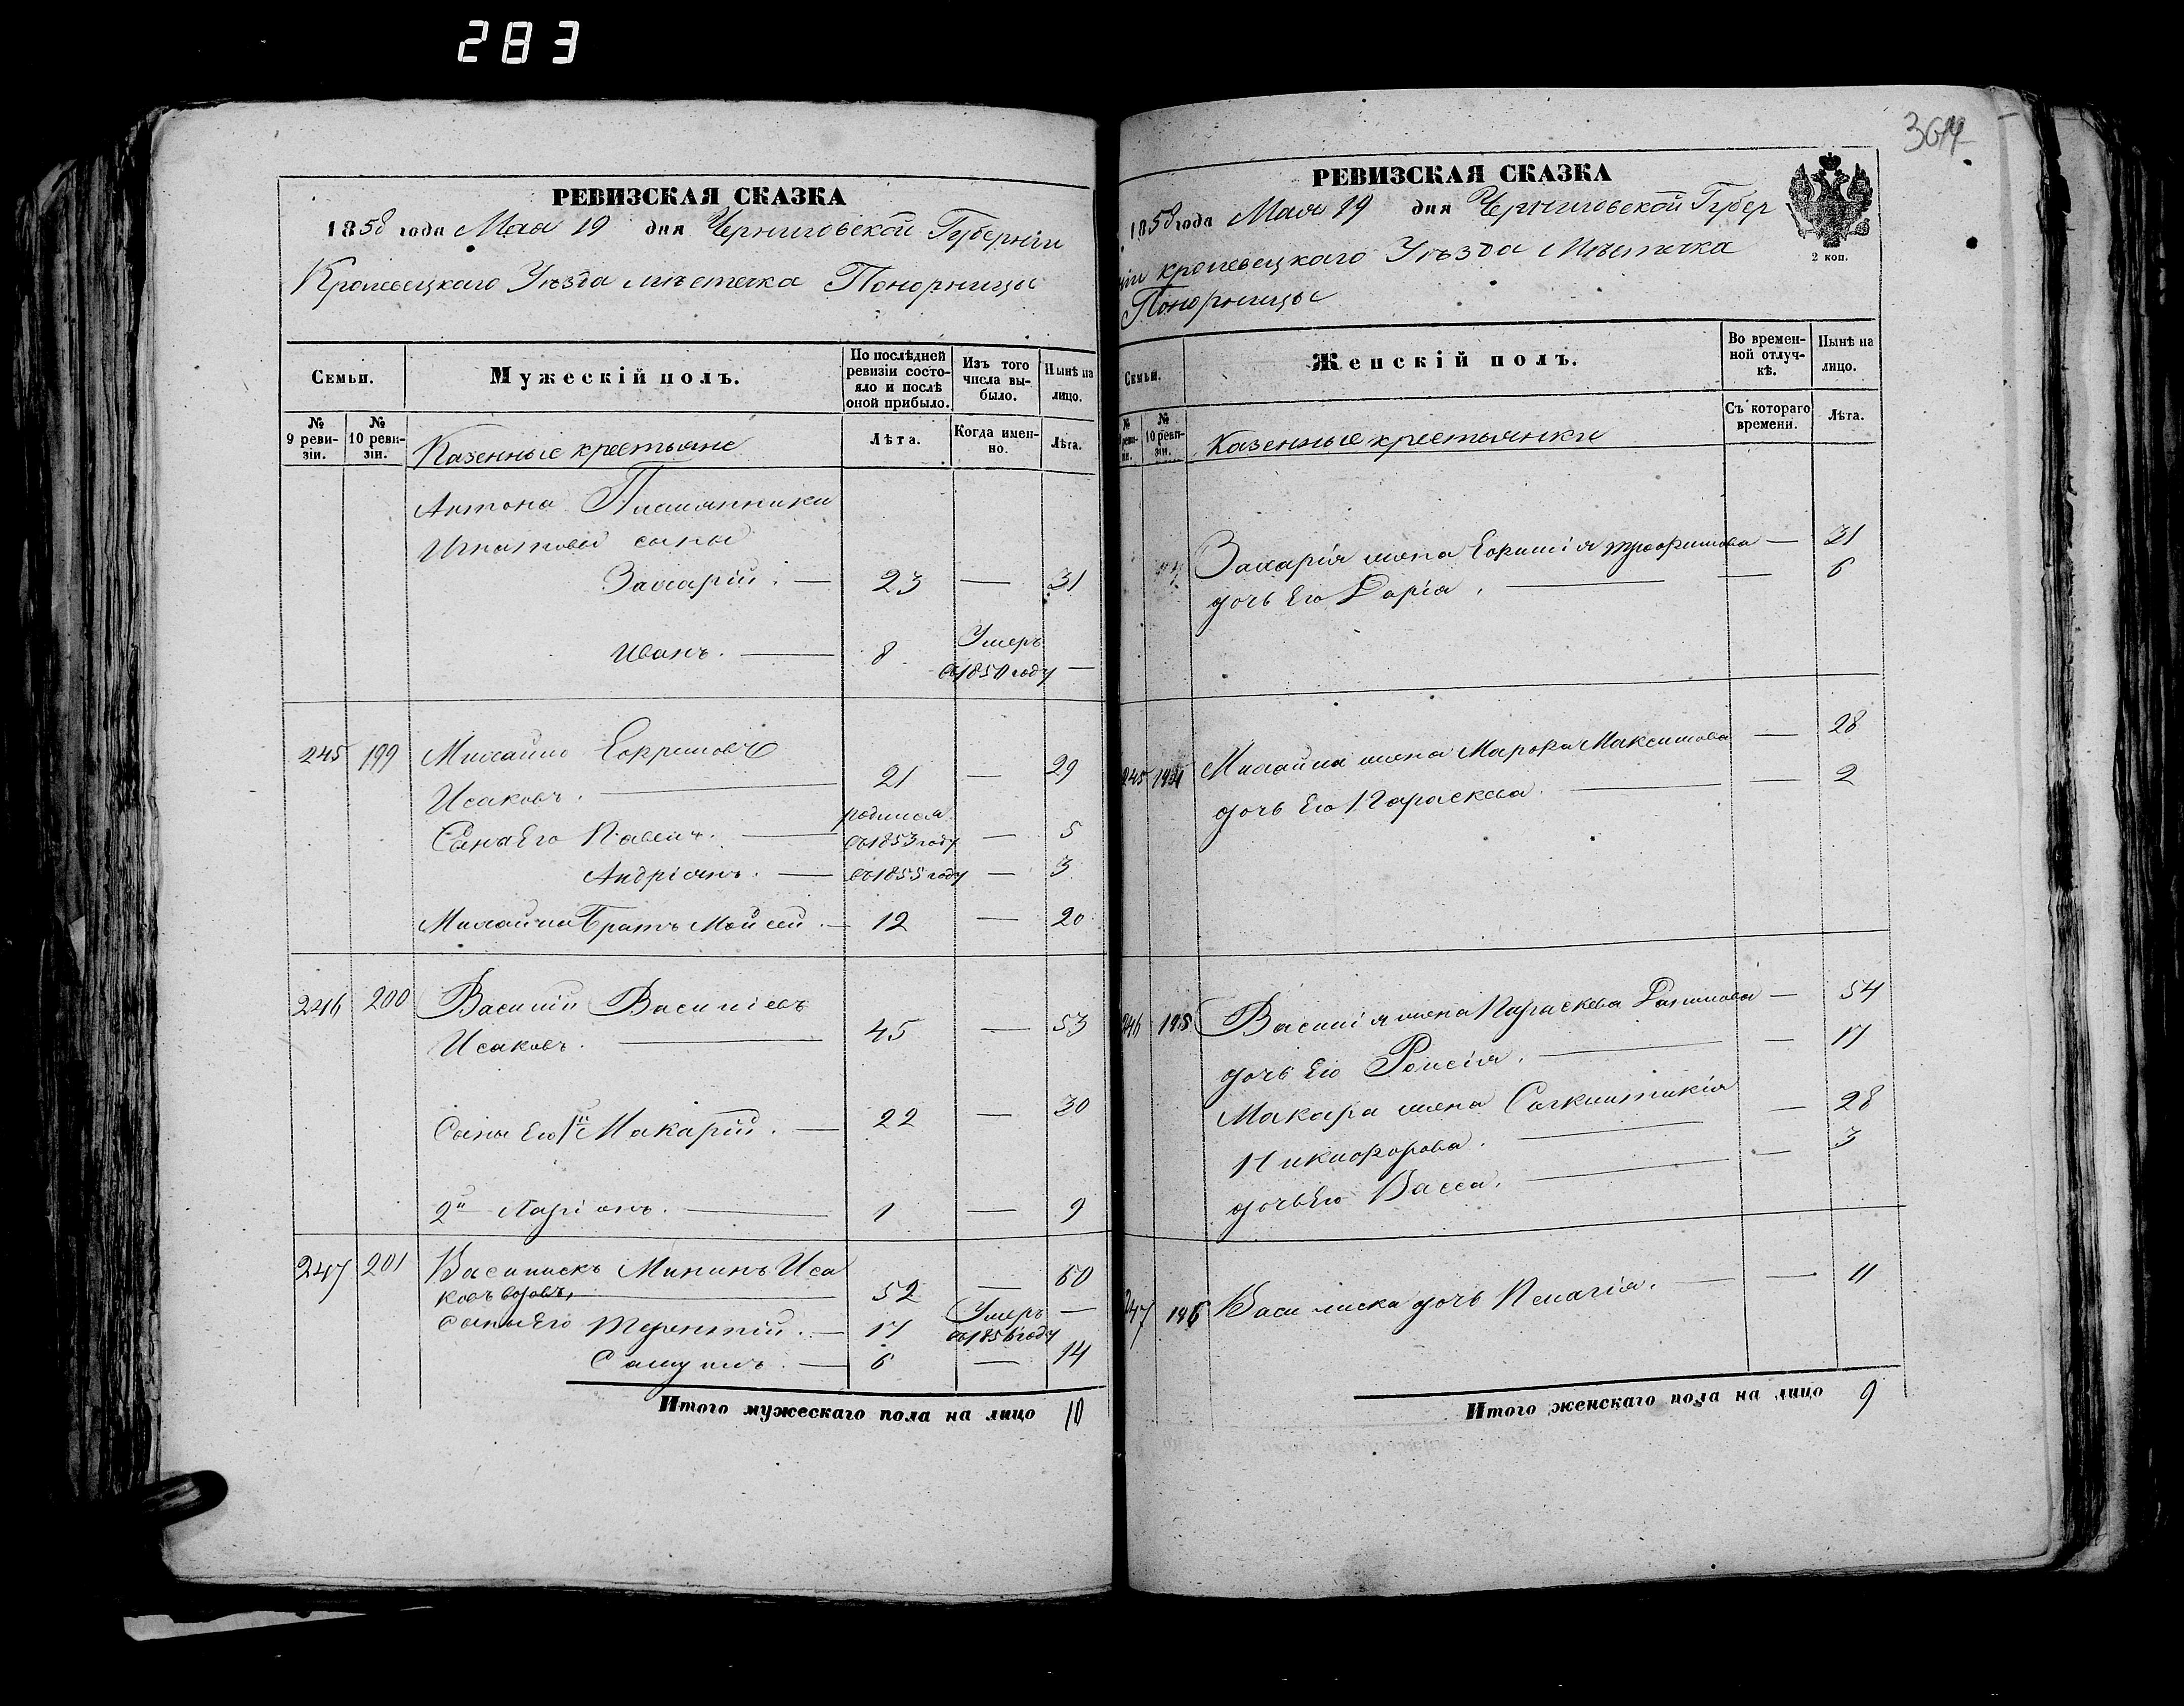 283
РЕВИЗСКАЯ СКАЗКА
1858 года Мая 19 дня Черниговской Губерніи
Кролевецкаго Уѣзда мѣстечка Понорницы
Семьи.
Мужескій полъ.
По послѣдней ревизіи состояло и послѣ оной прибыло.
Изъ того числа выбыло.
Нынѣ на лицо.
№ 9 ревизіи.
№ 10 ревизіи.
Казенные крестьяне
Лѣта.
Когда именно.
Лѣта.
Антона Племянники
Игнатовы сыны
Захарій. — 23 — 31
Иванъ. — 8 Умеръ
въ 1850 году —
245 199 Михайло Ефремовъ
Исаковъ. — 21 — 29
родился
Сына Его Павелъ. — въ 1853 году — 5
Андріянъ. — въ 1855 году — 3
Михайла Братъ Мойсей. — 12 — 20
246 200 Василій Василіевъ
Исаковъ. — 45 — 53
Сыны Его 1й Макарій. — 22 — 30
2й Ларіонъ. — 1 — 9
247 201 Василискъ Мининъ Иса
ковъ — 52 — 60
Сыны Его Терентій. — 17 Умеръ —
въ 1856 году
Самуилъ. — 6 — 14
Итого мужескаго пола на лицо 10
364
РЕВИЗСКАЯ СКАЗКА
1858 года Мая 19 дня Черниговской Губер
ніи кролевецкаго Уѣзда Мѣстечка
Понорницы
2 коп.
Семьи.
Женскій полъ.
Во временной отлучкѣ.
Нынѣ на лицо.
№ 9 ревизіи.
№ 10 ревизіи.
Казенные крестьянки
Съ котораго времени.
Лѣта.
Захарія жена Евфимія Трофимова — 31
дочь Его Дарія. — — 6
245 Михайла жена Марфа Максимова — 28
дочь Его Параскева. — — 2
246 195 Василія жена Параскева Данилова — 54
дочь Его — — 17
Макара жена
Никифорова. — — 28
дочь Его Васса. — — 3
247 196 Василиска дочь Пелагія. — — 11
Итого женскаго пола на лицо 9